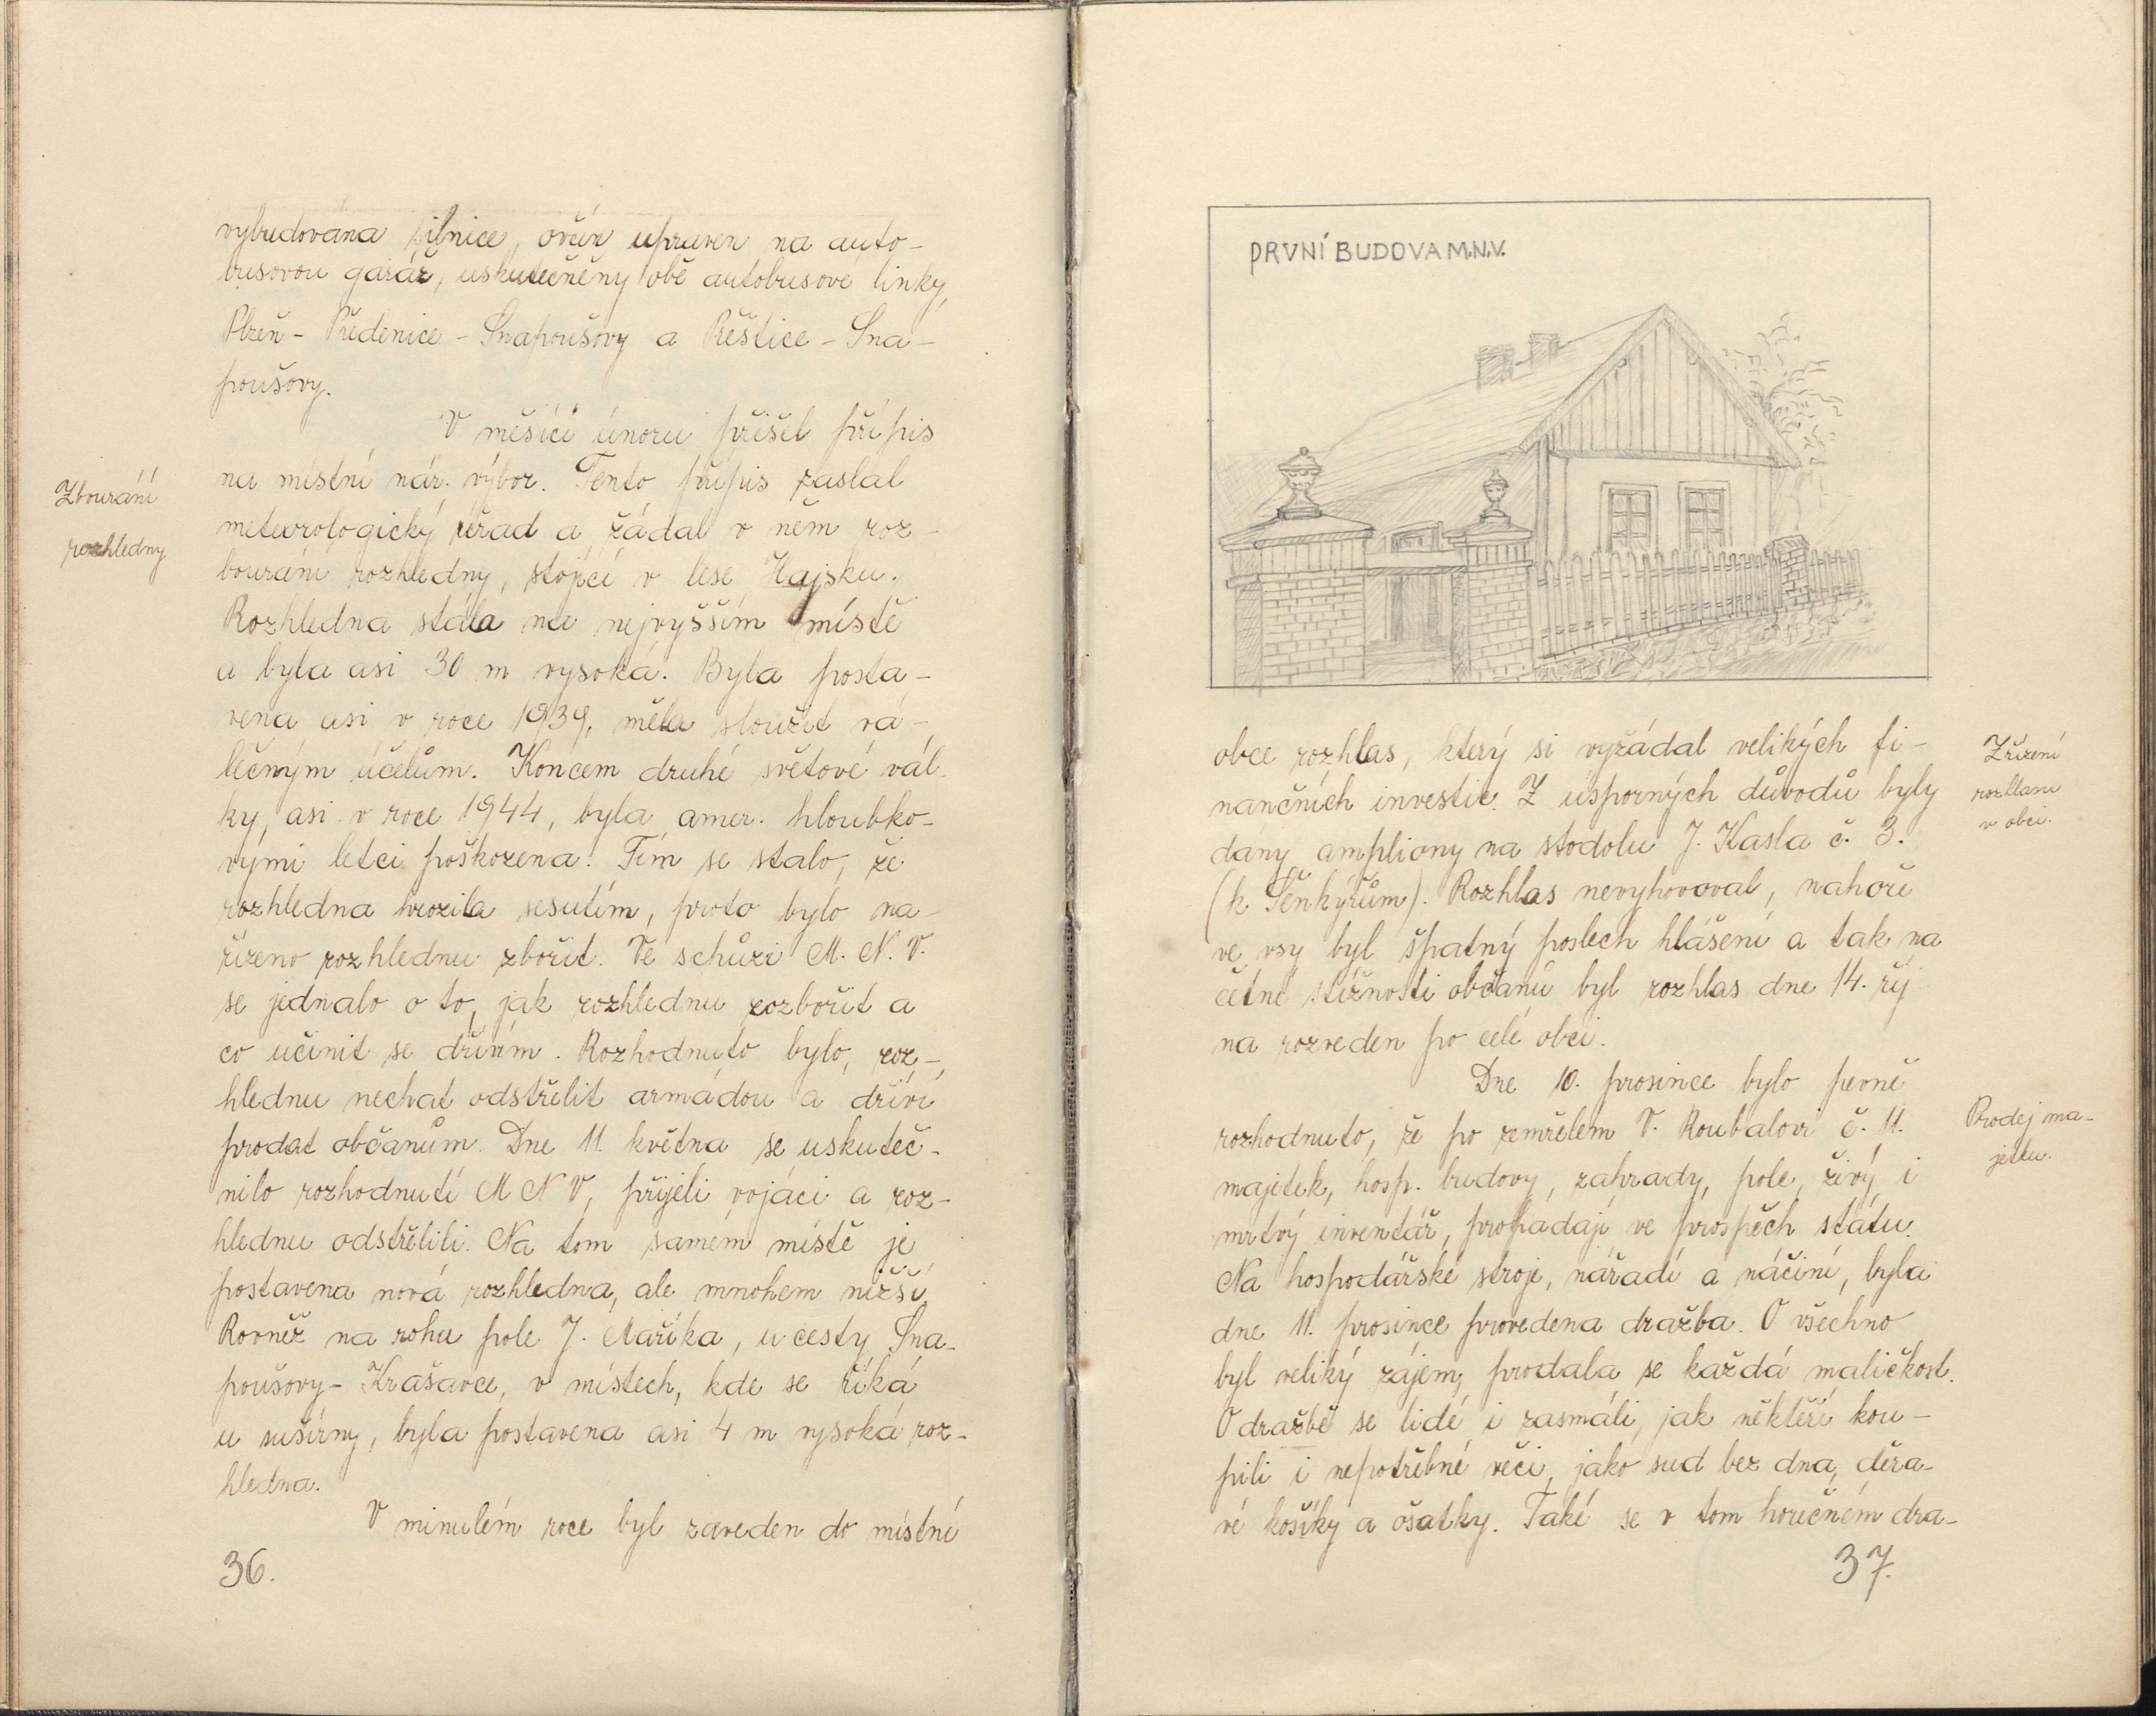 vybudována pilnice, ovčín upraven na auto-
busovou garáž, uskutečněny obě autobusové linky,
Plzeň - Předenice - Snapoušovy a Přeštice - Sna-
poušovy.
V měsíci únoru přišel přípis
na místní nár. výbor. Tento přípis zaslal
Zbourání
meteorologický úřad a žádal v něm roz-
rozhledny
bourání rozhledny, stojící v lese Hajsku.
Rozhledna stála na nejvyšším místě
a byla asi 30 m vysoká. Byla posta-
vena asi v roce 1939, měla sloužit vá-
lečným účelům. Koncem druhé světové vál-
ky, asi v roce 1944, byla amer. hloubko-
vými letci poškozena. Tím se stalo, že
rozhledna hrozila sesutím, proto bylo na-
řízeno rozhlednu zbořit. Ve schůzi M. N. V.
se jednalo o to, jak rozhlednu rozbořit a
co učinit se dřívím. Rozhodnuto bylo, roz-
hlednu nechat odstřelit armádou a dříví
prodat občanům. Dne 11. května se uskuteč-
nilo rozhodnutí M N V, přijeli vojáci a roz-
hlednu odstřelili. Na tom samém místě je
postavena nová rozhledna, ale mnohem nižší.
Rovněž na rohu pole J. Maříka, u cesty Sna-
poušovy - Krašavce, v místech, kde se říká
u sušírny, byla postavena asi 4 m vysoká roz-
hledna.
V minulém roce byl zaveden do místní
36.
PRVNÍ BUDOVA M.N.V.
obce rozhlas, který si vyžádal velikých fi-
Zřízení
nančních investic. Z úsporných důvodů byly
rozhlasu
v obci.
dány ampliony na stodolu J. Kasla č. 3.
(k Šenkýřům). Rozhlas nevyhovoval, nahoře
ve vsy byl špatný poslech hlášení a tak na
četné stížnosti občanů byl rozhlas dne 14. říj
na rozveden po celé obci.
Dne 10. prosince bylo pevně
rozhodnuto, že po zemřelém V. Roubalovi č. 11.
Prodej ma-
jetku.
majetek, hosp. budovy, zahrady, pole, živý i
mrtvý inventář, propadají ve prospěch státu.
Na hospodářské stroje, nářadí a náčiní, byla
dne 11. prosince provedena dražba. O všechno
byl veliký zájem, prodala se každá maličkost.
O dražbě se lidé i zasmáli, jak někteří kou-
pili i nepotřebné věci, jako sud bez dna, děra-
vé košíky a ošatky. Také se v tom horečném dra-
37.